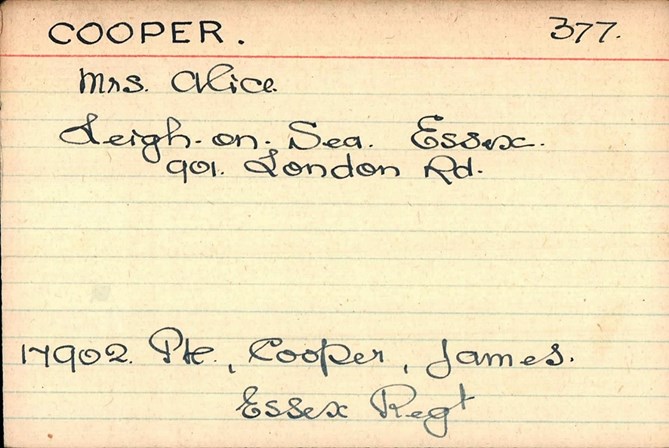 COOPER. 377.
Mrs. Alice.
Leigh-on-Sea. Essex.
901. London Rd.
17902. Pte., Cooper, James.
Essex Regt